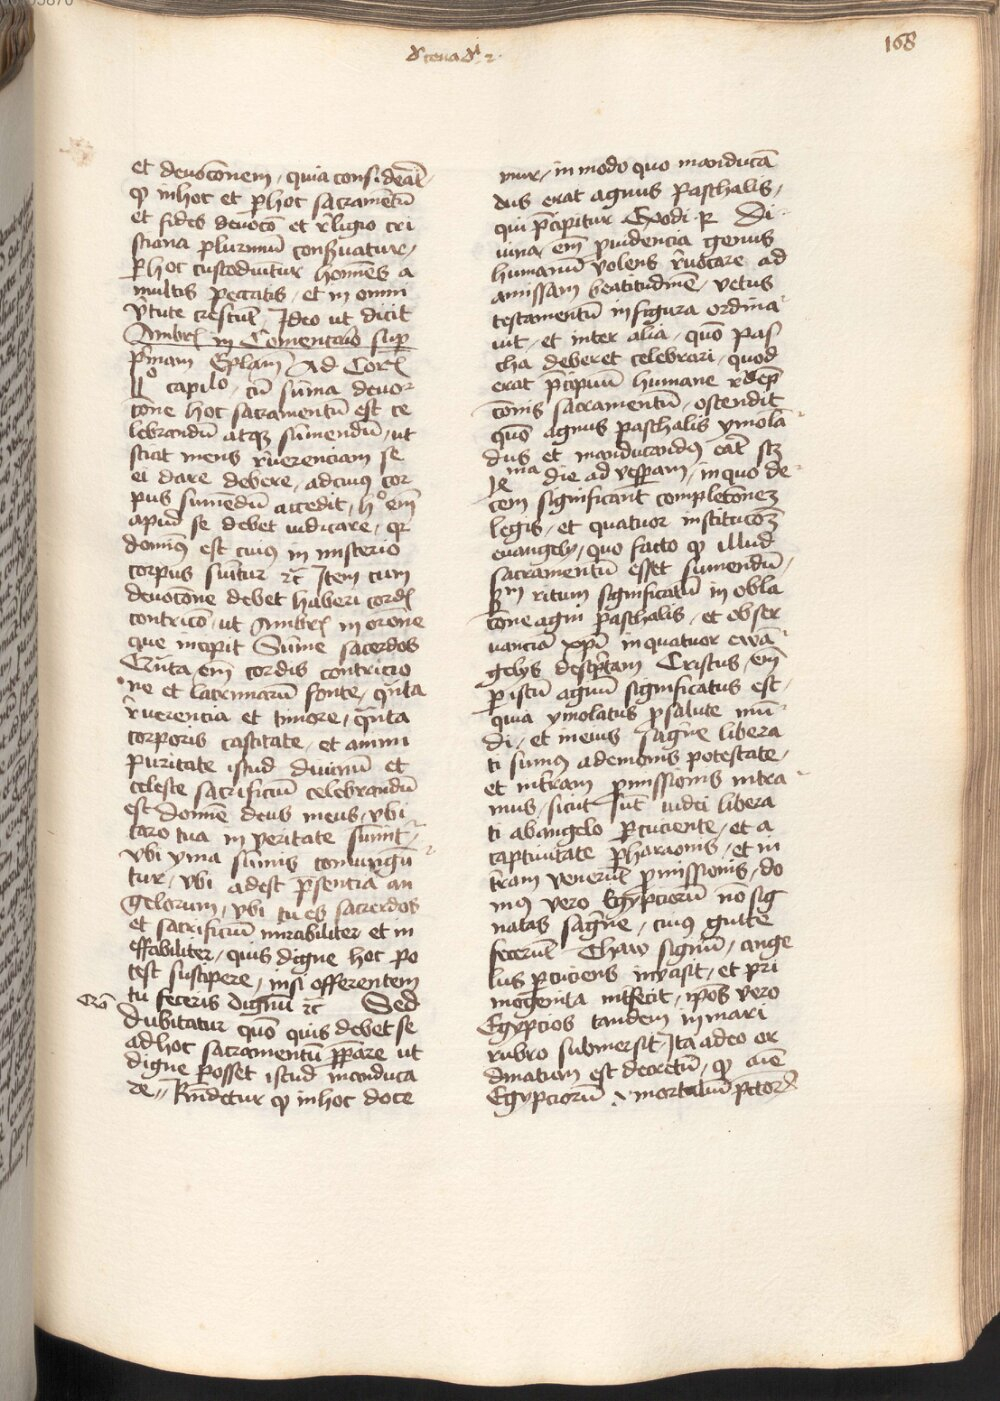 168
de cena dni 2
et deuocōnem, quia consideāt
qꝫ in hoc et p hoc sacramentū
et fides deuocō et r̄ligio cri
stiana plurimū conseruatur,
p hoc custodiūtur homēs a
multis peccatis, et in omni
v̄tute crescūt Ideo ut dicit
Ambr̄ in Comentario sup
p̄mam Ep̄lam Ad Cor̄
IIo capilo, cū sūma deuo
cōne hoc sacramentū est ce
lebrandū atqꝫ sūmendū, ut
sciat mens r̄uerenciam se
ei dare debere, ad cuiꝯ cor
pus sumēdū accedit, hº em̄
apud se debet iudicare, qꝛ
domīꝯ est cuiꝯ in misterio
corpus sūitur ꝛc̄ Item cum
deuocōne debet haberi cord̄
contricō, ut Ambr̄ in orōne
que incipit Sūme sacerdos
Q̄nta em̄ cordis contricio
ne et lacrimarū fonte, q̄nta
r̄uerencia et timore, q̄nta
corporis castitate, et animi
puritate istud diuinū et
celeste sacrificiū celebrandū
est domīe deus meus, vbi
caro tua in veritate sūmit
vbi yma sūmis coniungū
tur, vbi adest p̄sentia an
gelorum, vbi tu es sacerdos
et sacrificiū mirabiliter et in
effabiliter, quis digne hoc po
test suscipere, nisi offerentem
tu feceris dignū ꝛc̄ Sed
dubitatur quō quis debet se
ad hoc sacramentū ꝓpare ut
digne posset istud manduca
re,, Rn̄detur qꝫ in hoc doce
mur, in modo quo manducā
dus erat agnus paschalis,
qui p̄cipitur Exodi Di
uina em̄ ꝓuidencia genus
humanū volens r̄uocare ad
amissam beatitudinē, vetus
testamentū in figura ordina
uit, et inter alia, quō pas
cha deberet celebrari, quod
erat p̄cipuū humane redēp
cōnis sacramentū, ostendit
quō agnus paschalis ymolā
dus et manducandꝯ eāt scꝫ
ma die ad vesp̄am, in quo de
cem significant completōneꝫ
legis, et quatuor institucōꝫ
euangely, quo facto qꝫ illud
sacramentū esset sumendū,
Sm ritum significatū in obla
cōne agni paschalis, et obser
uanciā xp̄i in quatuor ewā
gelys descptam Cristus em̄
p istū agnū significatus est,
quia ymolatus ꝓ salute mū
di, et in eius sāgne libera
ti sumꝯ a demonis potestate,
et in t̄ram ꝓmissionis intra
mus, sicut sūt iudei libera
ti ab angelo ꝑcuciente, et a
captiuitate pharaonis, et in
t̄ram venerūt ꝓmissionis, do
mꝯ vero Egypciorū nō sig
natas sāgne, cuiꝯ gutte
fecerūt Thaw signū, ange
lus ꝑcuciens inuasit, et pri
mogenita int̄fecit, ip̄os vero
Egypcios tandem in mari
rubro submersit, Ita a deo or
dinatum est decretū, qꝫ cūe
Egypciorū mortaliū pc̄tor̄